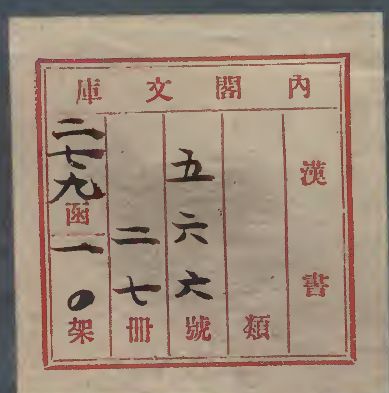 內閣文庫
漢書
類
五六六號
二七冊
二七九函一〇架